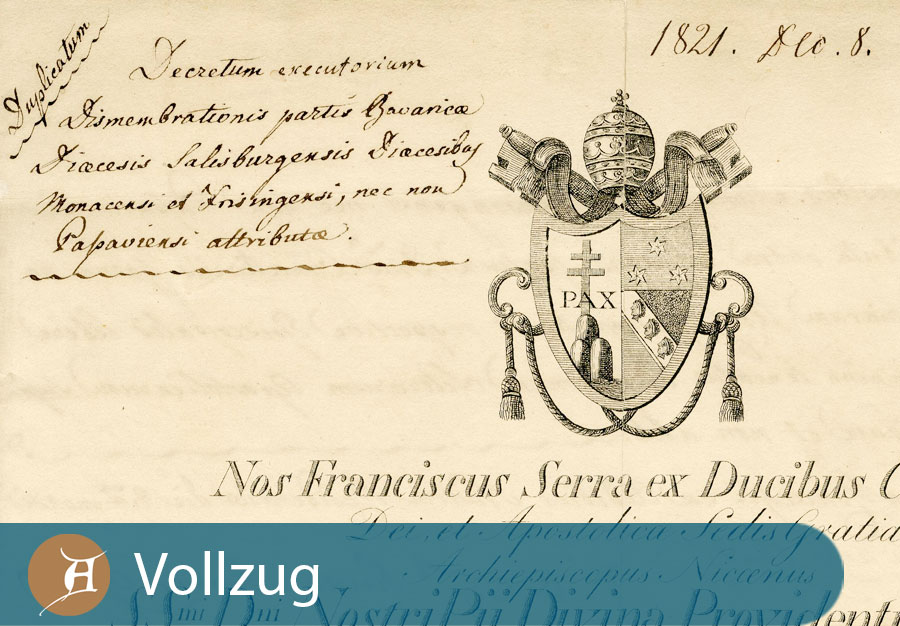 Duplicatum
1821. Dec. 8.
Decretum executorium
Dismembrationis partis Bavaricæ
Diœcesis Salisburgensis Diœcesibus
Monacensi et Frisingensi, nec non
Paßaviensi attributæ.
PAX
Nos Franciscus Serra ex Ducibus C
Dei, et Apostolica Sedis Gratia
Archiepiscopus Nicænus
SSmi Dni Nostri Pii Divina Provident
A Vollzug